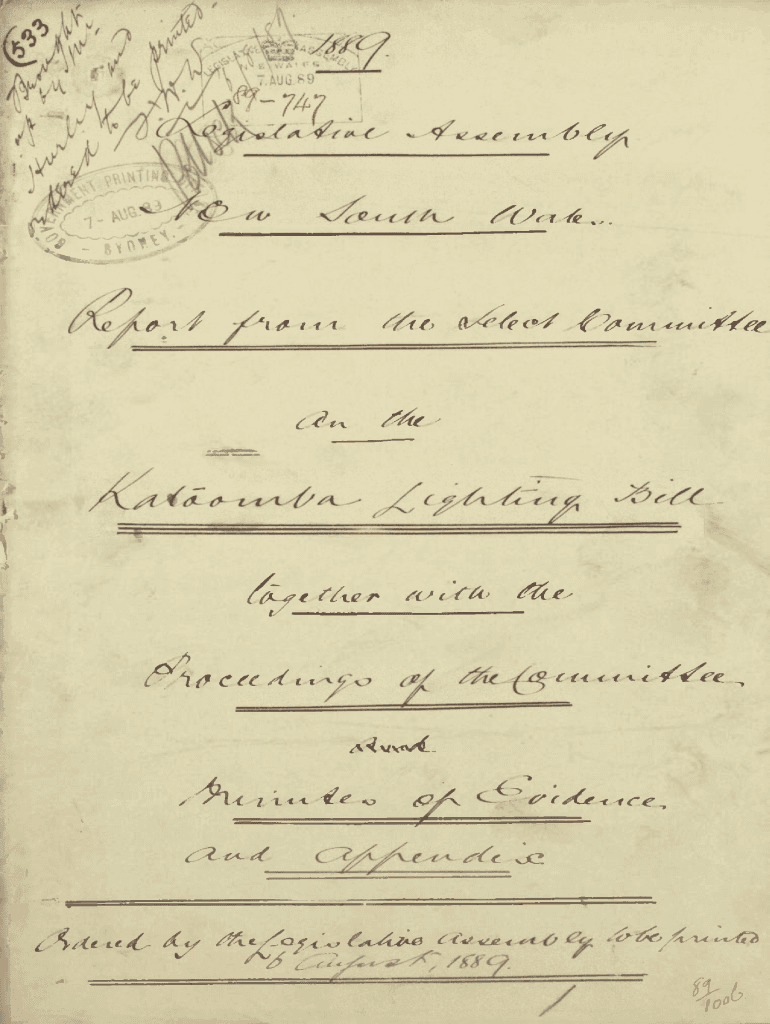 533
Brought
up by Mr
Hurley and
ordered to be printed
1889.
LEGISLATIVE ASSEMBLY
7 AUG. 89
89-747
Legislative Assembly
GOVERNMENT PRINTING
7- AUG. 89
- SYDNEY. -
New South Wales.
Report from the Select Committee
on the
Katoomba Lighting Bill
together with the
Proceedings of the Committee
Minutes of Evidence
and Appendix
Ordered by the Legislative Assembly to be printed
6 August, 1889.
89/1006